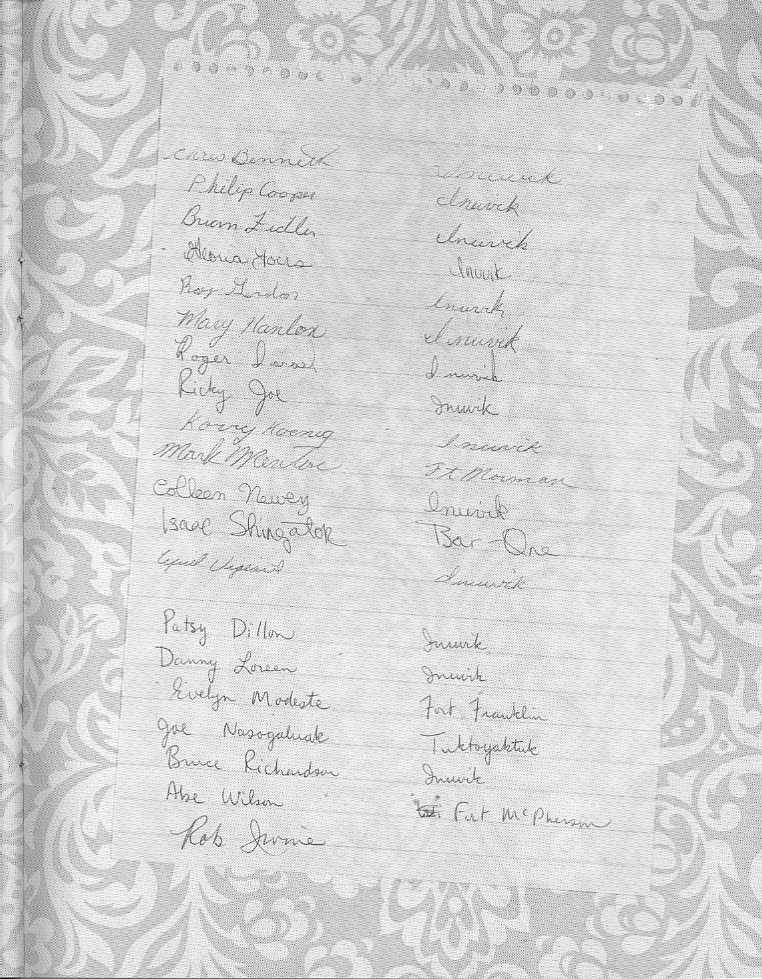 Chris Benneth Inuvik
Philip Cooper Inuvik
Brian Fidler Inuvik
Inuvik
Roy Inuvik
Mary Hanlon Inuvik
Roger Inuvik
Ricky Joe Inuvik
Korry Koenig Inuvik
Mark Ft Norman
Colleen Newey Inuvik
Isaac Shingatok Bar-One
Inuvik
Patsy Dillon Inuvik
Danny Loreen Inuvik
Evelyn Modeste Fort Franklin
Joe Nasogaluak Tuktoyaktuk
Bruce Richardson Inuvik
Abe Wilson Fort McPherson
Rob Irvine